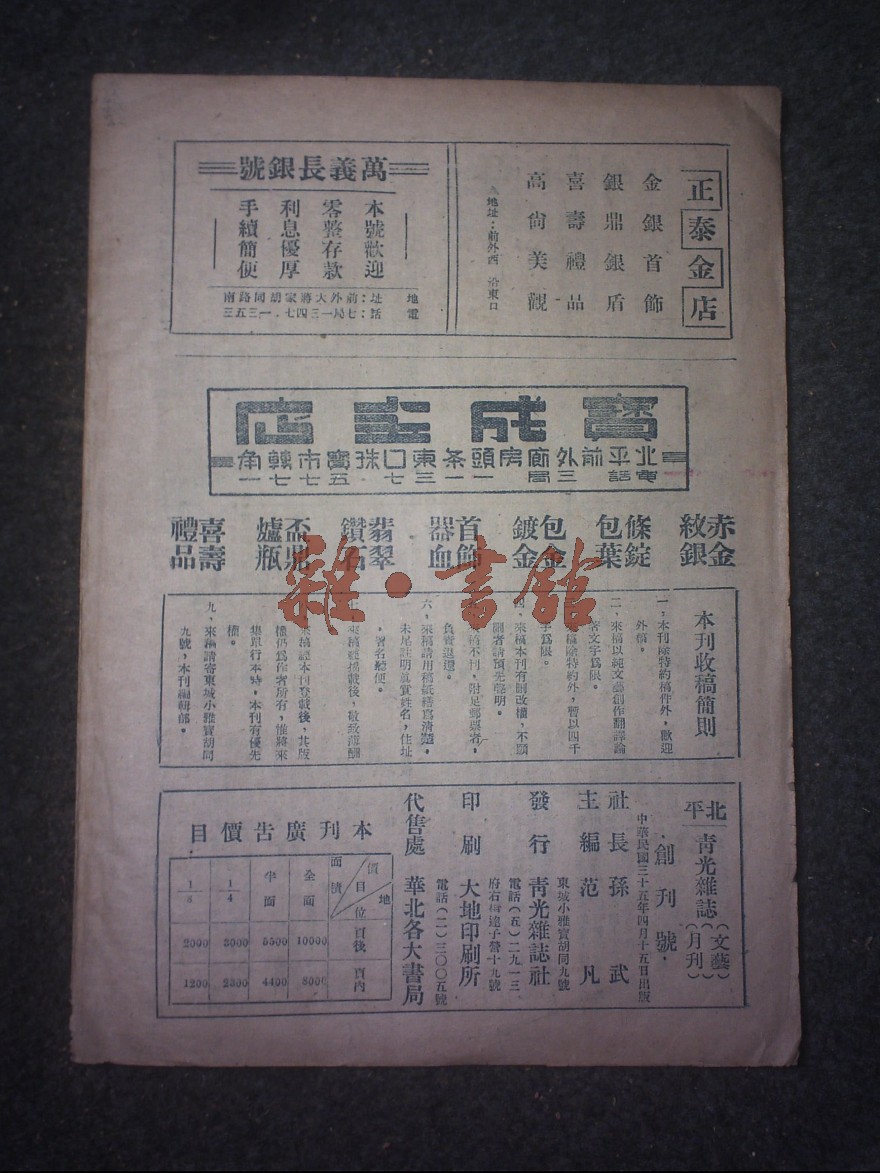 正泰金店
金銀首飾
銀鼎銀盾
喜壽禮品
高尙美觀
地址：前外西 沿東口
萬義長銀號
本號歡迎
零整存款
利息優厚
手續簡便
地址：前外大蔣家胡同路南
電話：七局一三四七．一三五三
寳成主店
北平前外廊房頭条東口珠寳市轉角
電話三局一一三七 五七七一
赤金
紋銀
條錠
包葉
包金
鍍金
首飾
器皿
翡翠
鑽石
盃鼎
爐瓶
喜壽
禮品
雜·書館
本刊收稿簡則
一，本刊除特約稿件外，歡迎
外稿。
二，來稿以純文藝創作翻譯論
著文字爲限。
稿除特約外，暫以四千
字爲限。
四，來稿本刊有删改權，不願
删者請預先聲明。
稿不刊，附足郵票者，
負責退還。
六，來稿請用稿紙繕寫淸楚。
未尾註明眞實姓名，住址
，署名聽便。
七，來稿經揭載後，敬致薄酬
來稿經本刊登載後，其版
權仍爲作者所有，惟將來
集單行本時，本刊有優先
權。
九，來稿請寄東城小雅寳胡同
九號，本刊編輯部。
北平
靑光雜誌（文藝月刊）
創刊號
中華民國三十五年四月十五日出版
社長 孫武
主編 范凡
東城小雅寳胡同九號
發行 靑光雜誌社
電話（五）二九一三
府右街達子營十九號
印刷 大地印刷所
電話（二）三〇〇五號
代售處 華北各大書局
本刊廣吿價目
價目 地位 面積
全面 半面 1/4 1/8
頁後 10000 5500 3000 2000
頁內 8000 4400 2300 1200